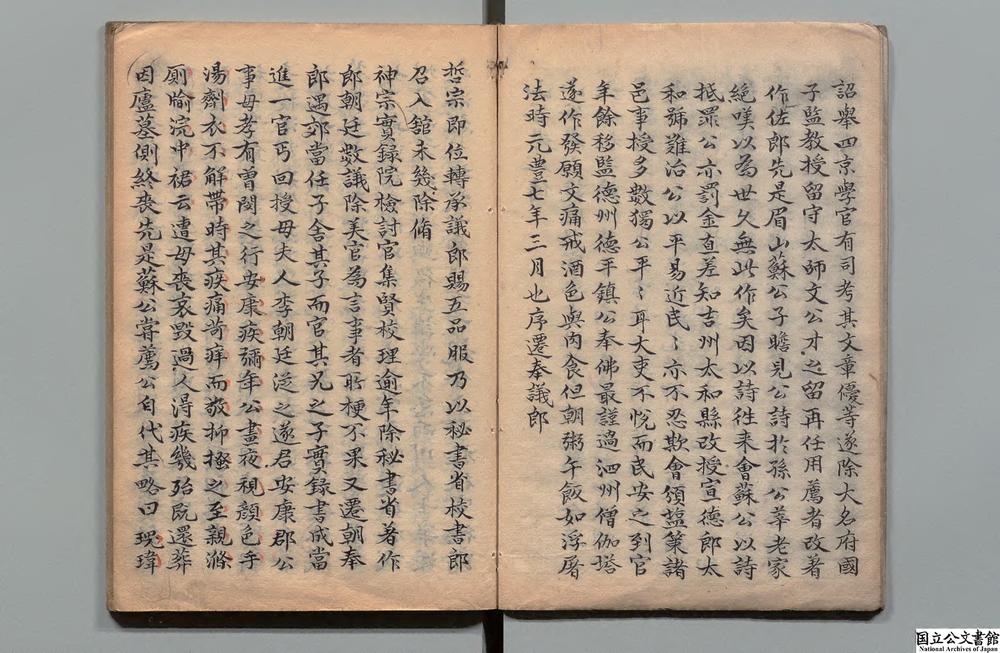 詔舉四京學官有司考其文章優等遂除大名府國
子監教授留守太師文公才之留再任用薦者改著
作佐郎先是眉山蘇公子瞻見公詩於孫公莘老家
絶嘆以為世久無此作矣因以詩徃来會蘇公以詩
抵罪公亦罰金直差知吉州太和縣改授宣德郎太
和號難治公以平易近民〻亦不忍欺會頒塩筴諸
邑事授多數獨公平〻耳大吏不悅而民安之到官
年餘移監德州德平鎮公奉佛最謹過泗州僧伽塔
遂作發願文痛戒酒色與肉食但朝粥午飯如浮屠
法時元豊七年三月也序遷奉議郎
哲宗即位轉承議郎賜五品服乃以秘書省校書郎
召入舘未幾除脩
神宗實録院檢討官集賢校理逾年除秘書省著作
郎朝廷數議除美官為言事者所梗不果又遷朝奉
郎遇郊當任子舍其子而官其兄之子實録書成當
進一官丐回授母夫人李朝廷従之遂君安康郡公
事母孝有曽閔之行安康疾彌年公晝夜視顔色手
湯劑衣不解帶時其疾痛苛痒而敬抑搔之至親滌
厠喻浣中裙云遭母喪哀毀過人得疾幾殆既還葬
因廬墓側終喪先是蘇公嘗薦公自代其略曰瑰瑋
国立公文書館
National Archives of Japan